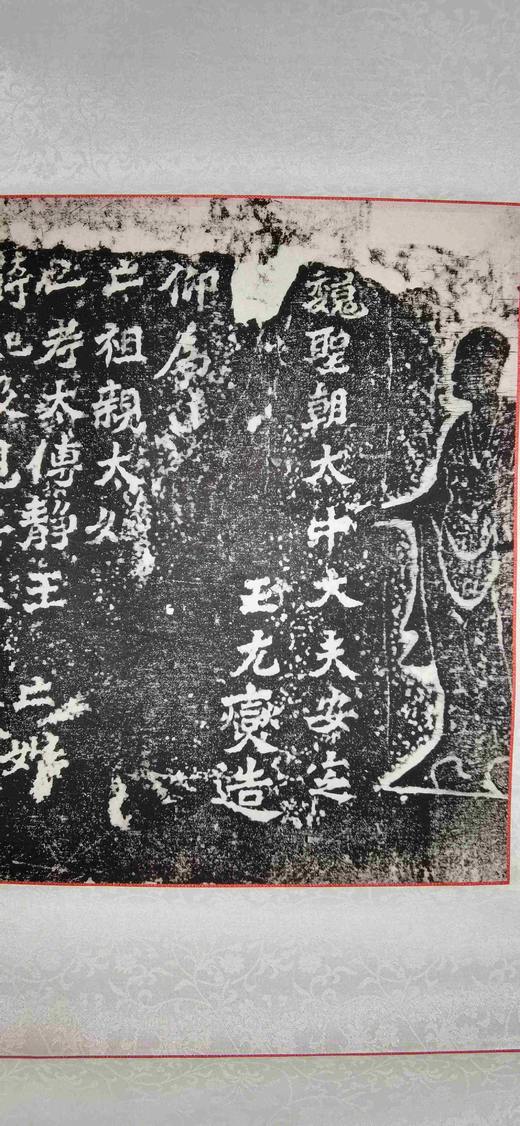 魏聖朝太中大夫安定
王元燮造
仰為
亡祖親太妃
亡考太傅静王 亡妣
將妃及見